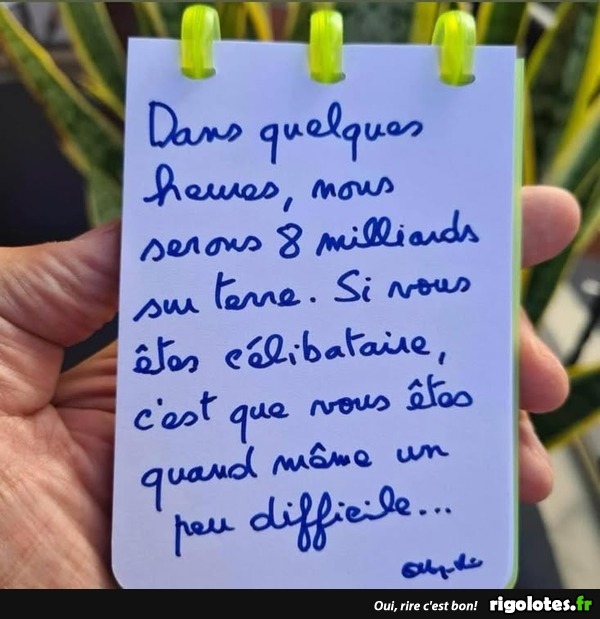 Dans quelques
heures, nous
serons 8 milliards
sur terre. Si vous
êtes célibataire,
c'est que vous êtes
quand même un
peu difficile...
Oui, rire c'est bon! rigolotes.fr